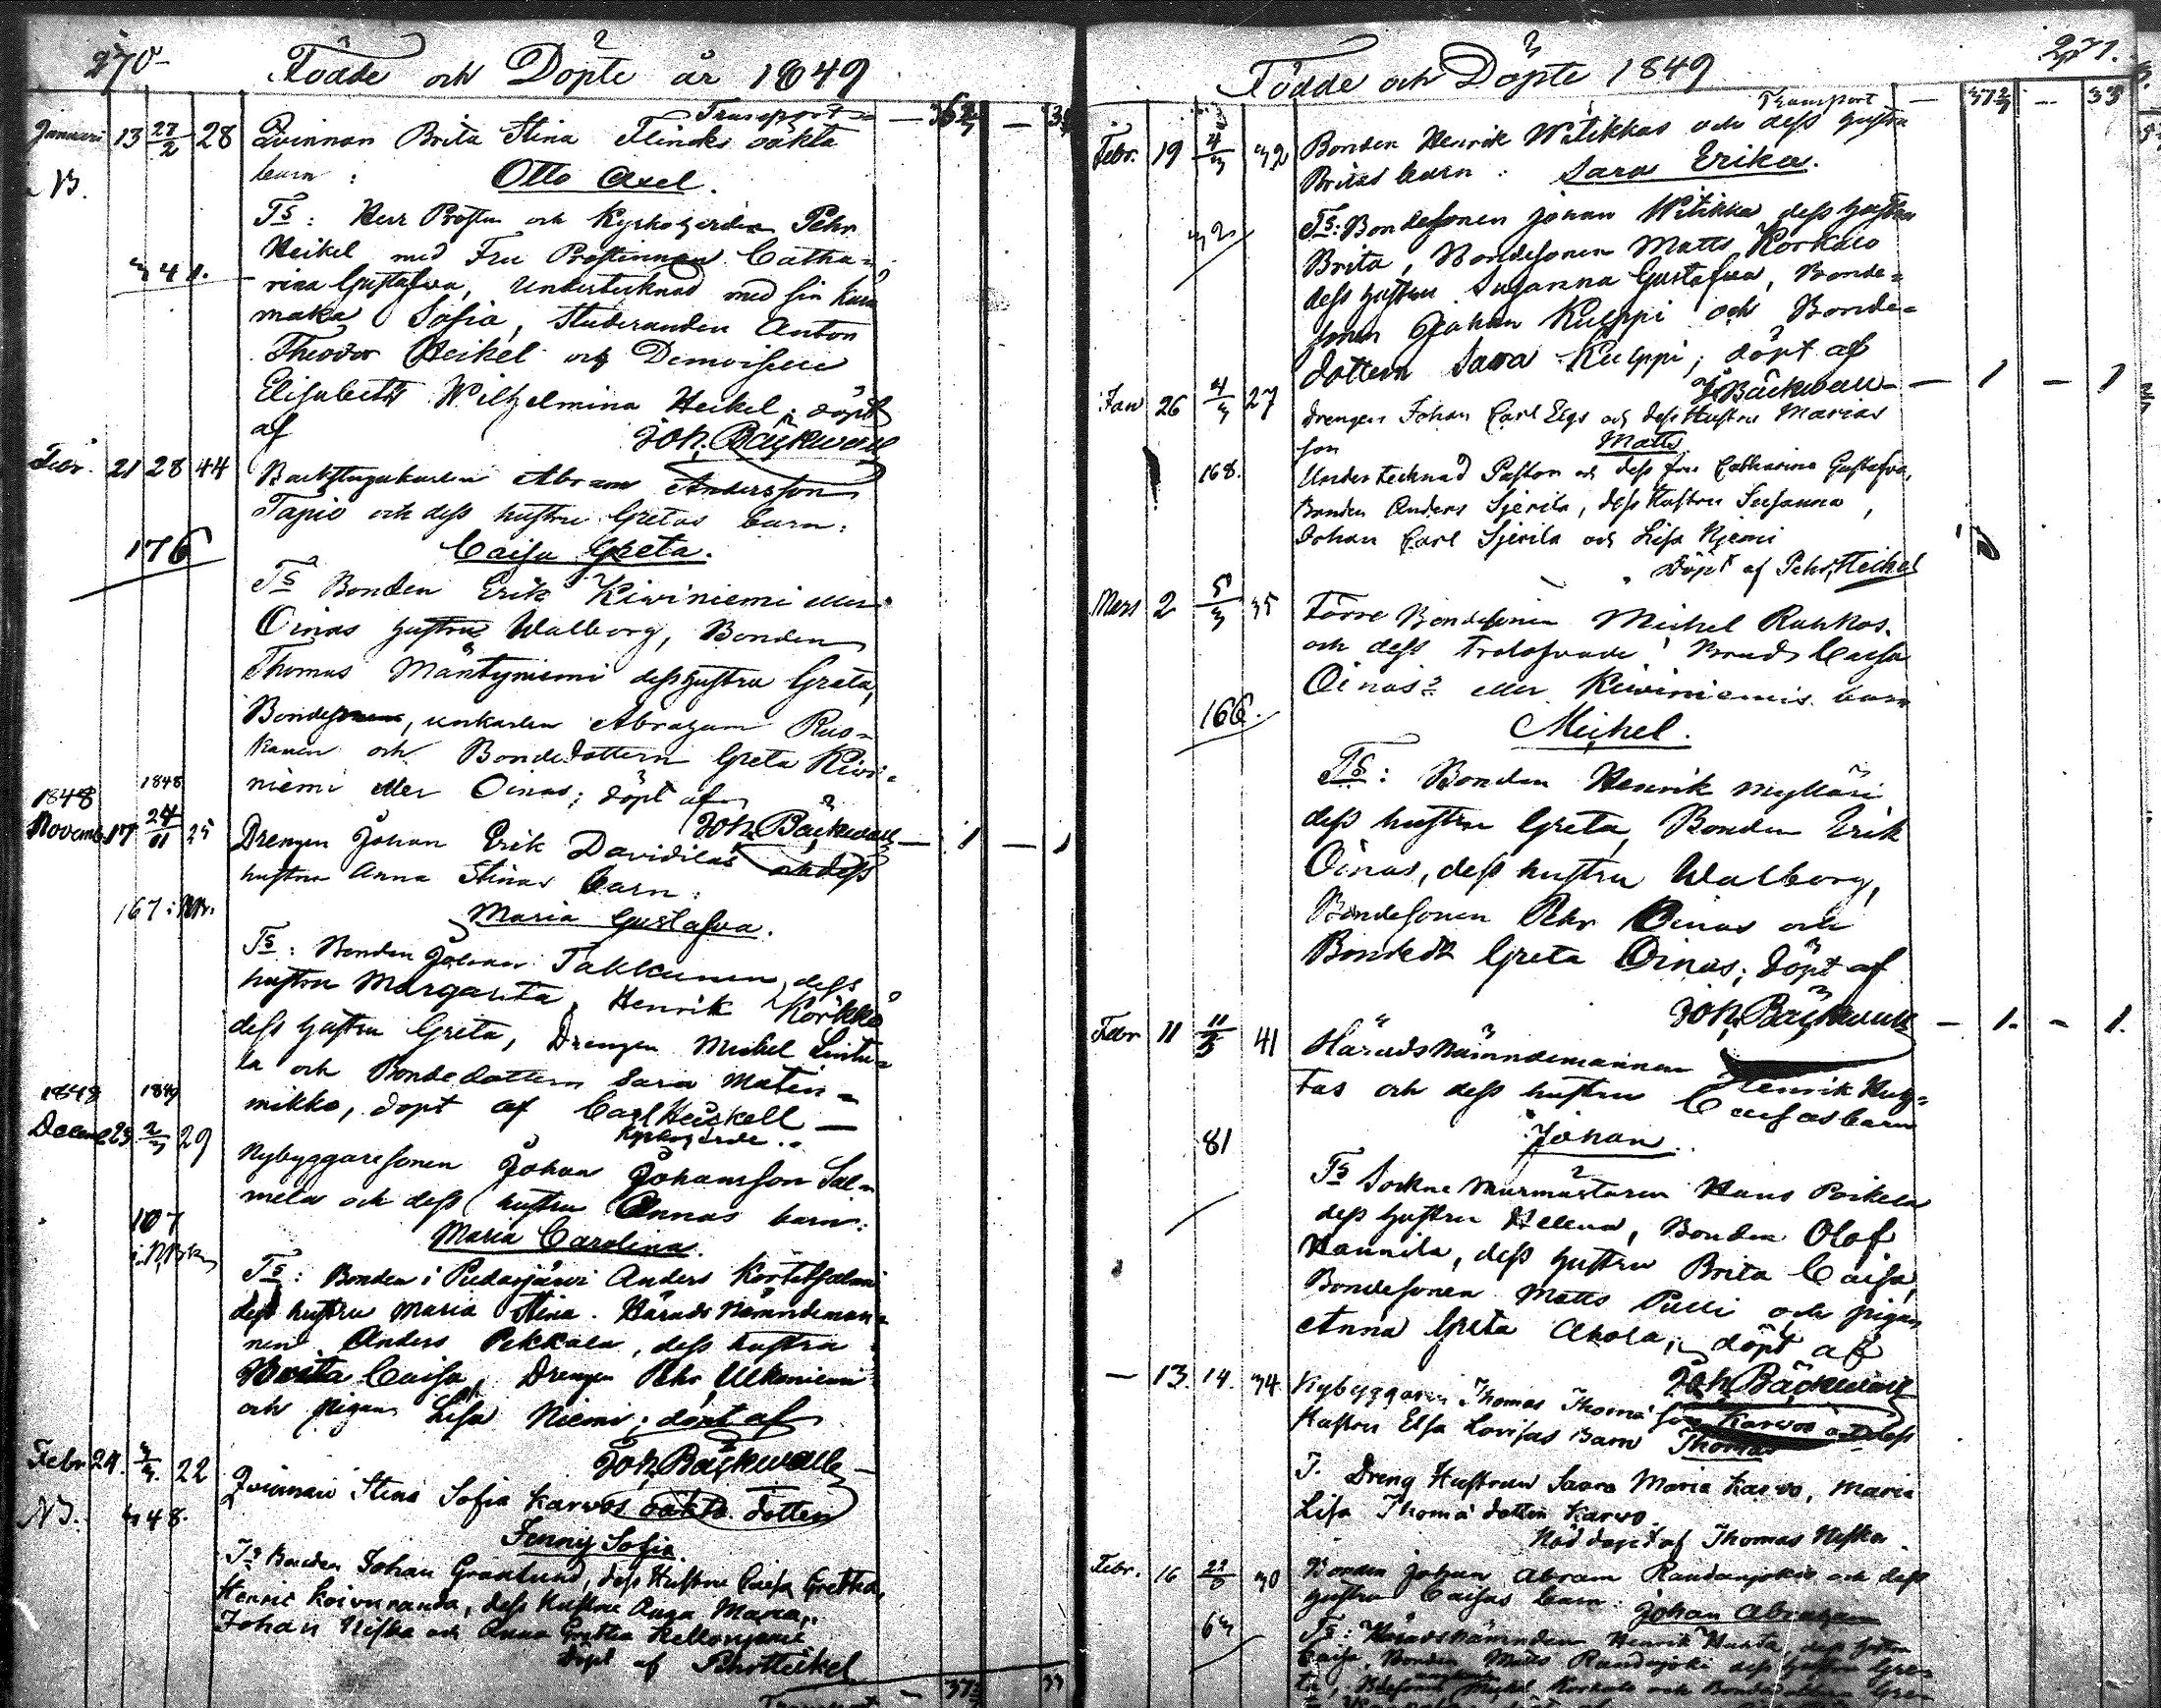 270
Födde och Döpte år 1849
Transport
Januari 13 27/2 28 Qvinnan Brita Stina Flincks oäkta
NB. barn: Otto Axel.
Ts: Herr Prosten och Kyrkoherden Pehr
Heikel med Fru Prostinnan Catha=
341. rina Gustafva, Undertecknad med sin kära
maka Sofia, Studeranden Anton
Theodor Heikel och Demoiselle
Elisabeth Wilhelmina Heikel; döpt
af Joh. Bäckwall
Febr. 21 28 44 Backstugukarlen Abram Andersson
Tapio och dess hustru Gretas barn:
176 Caisa Greta.
Ts Bonden Erik Kiviniemi eller
Oinas hustru Walborg, Bonden
Thomas Mäntyniemi dess hustru Greta,
Bondesonen, unkarlen Abraham Rus=
kanen och Bondedottern Greta Kivi=
niemi eller Oinas; döpt af
Joh. Bäckwall
1848 1848
Novemb. 17 24/11 25 Drengen Johan Erik Davidilas och dess — 1 — 1
hustru Anna Stinas barn:
167 Maria Gustafva.
Ts: Bonden Johan Takkunen, dess
hustru Margareta, Henrik Körkkö
dess hustru Greta, Drengen Michel Lintu=
la och Bondedottern Sara Matin=
mikko, döpt af Carl Heickell
Kyrkoherde
1848 1849
Decemb 23 2/3 29 Nybyggaresonen Johan Johansson Sal=
mela och dess hustru Annas barn:
107 Maria Carolina.
Ts: Bonden i Pudasjärvi Anders Kortetsalmi
dess hustru Maria Stina. Härads Nämndeman=
nen Anders Pekkala, dess hustru
Brita Caisa, Drengen Pehr Ulkuniemi
och Pigan Lisa Niemi; döpt af
Joh. Bäckwall
Febr 24. 3/3. 22 Qvinnan Stina Sofia Karvos oäkta dotter
NB. 348. Jenny Sofia.
Ts Bonden Johan Granlund, dess Hustru Caisa Gretha,
Henric Koivuranta, dess Hustru Anna Maria,
Johan Niska och Anna Gretha Kellonjervi
Döpt af Pehr Heikel
Transport — 37 33
271.
Födde och Döpte 1849
Transport — 37 2/3 — 33
Febr. 19 4/3 32 Bonden Henrik Witikkas och dess hustru
Britas barn: Sara Erika.
32 Ts: Bondesonen Johan Witikka dess hustru
Brita, Bondesonen Matts Korkalo
dess hustru Susanna Gustafva, Bonde=
sonen Johan Kulppi och Bonde=
dottern Sara Kulppi; döpt af
J. Bäckwall — 1 — 1
Jan 26 4/3 27 Drengen Johan Carl Elgs och dess Hustru Marias
son Matts
168. Undertecknad Pastor och dess fru Catharina Gustafva,
Bonden Anders Sjerila, dess Hustru Susanna,
Johan Carl Sjerila och Lisa Niemi
Döpt af Pehr Heikel
Mars 2 5/3 35 Förre Bondesonen Michel Ruhkas.
och dess trolofvade Brud Caisa
Oinas eller Kiviniemis barn
166. Michel.
Ts: Bonden Henrik Mylläri
dess hustru Greta, Bonden Erik
Oinas, dess hustru Walborg,
Bondesonen Pehr Oinas och
Bonded:r Greta Oinas; döpt af
Joh. Bäckwall — 1. — 1.
Febr 11 11/3 41 Härads Nämndemannen Henrik Huh=
tas och dess hustru Caisas barn
81 Johan.
Ts Sockne Murmästaren Hans Poikela
dess hustru Helena, Bonden Olof
Hannila, dess hustru Brita Caisa,
Bondesonen Matts Pulli och pigan
Anna Greta Ahola; döpt af
Joh Bäckwall
— 13. 14. 34 Nybyggaren Thomas Thomasson Karvos och dess
Hustru Elsa Lovisas Barn Thomas
T. Dreng Hustrun Saara Maria Karvo, Maria
Lisa Thomä dotter Karvo.
Nöd döpt af Thomas Niska.
Febr. 16 30 Bonden Johan Abram Raudanjokis och dess
hustru Caisas barn: Johan Abraham
63 Ts: Häradsnämnden Henrik Huhta dess hustru
Caisa, Bonden Matts Raudanjoki dess hustru Gre=